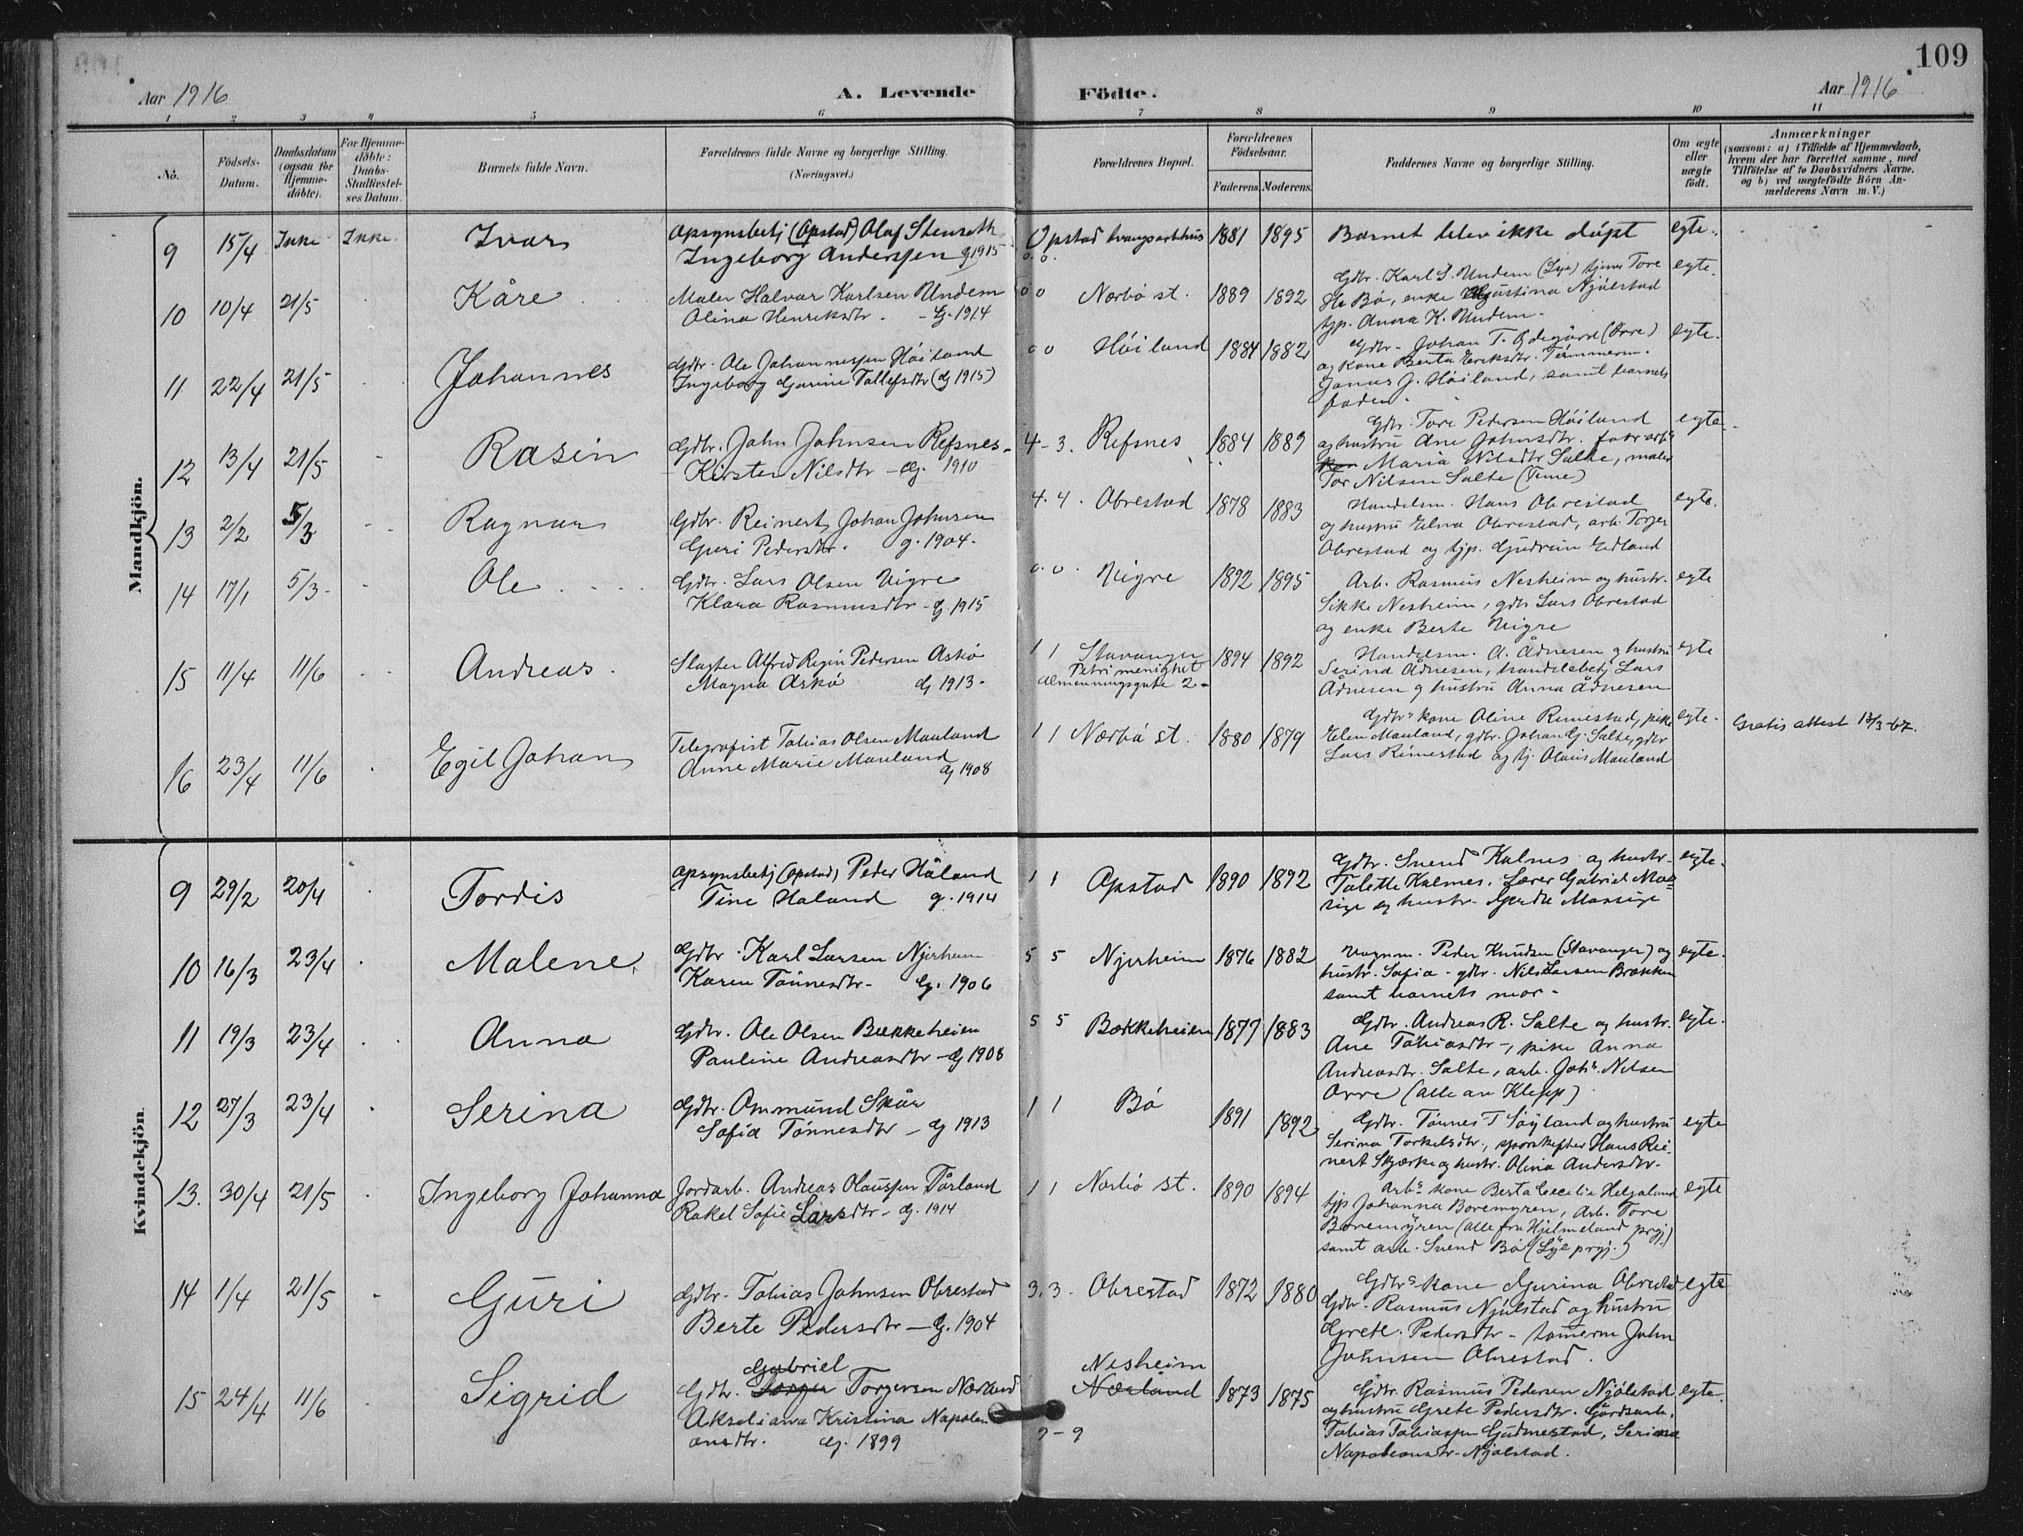 109
Aar 1916 A. Levende Födte. Aar 1916
1 2 3 4 5 6 7 8 9 10 11
No. Födsels-Datum. Daabsdatum (ogsaa for Hjemme-döbte). For Hjemme-döbte: Daabs-Stadfæstel-ses Datum. Barnets fulde Navn. Forældrenes fulde Navne og borgerlige Stilling. (Næringsvei.) Forældrenes Bopæl. Forældrenes Födselsaar. Faderens. Moderens. Faddernes Navne og borgerlige Stilling. Om ægte eller uægte födt. Anmærkninger
(saasom: a) i Tilfælde af Hjemmedaab, hvem der har forrettet samme, med Tilföielse af to Daabsvidners Navne. og b) ved uægtefödte Börn Anmelderens Navn m. V.)
Mandkjön.
9 15/4 Ikke Ikke Ivar Opsynsbetj (Opstad) Olaf Stenseth
Ingeborg Anderssen g 1915
Opstad tvangsarbhus 0. 0. 1881 1895 Barnet blev ikke døpt egte.
10 10/4 21/5 Kåre Maler Halvar Karlsen Undem
Olina Henriksdtr. - G. 1914
0 0 Nærbø st. 1889 1892 Gdbr. Karl S. Undem (Lye) tjener Tore
Bø, enke Gustina Njølstad
tjp. Anna K. Undem. egte.
11 22/4 21/5 Johannes Gdbr. Ole Johannessen Høiland
Ingeborg Gurine Tollefsdtr (g 1915)
0 0 Høiland 1884 1882 Gdbr. Johan T. Ødegård (Orre)
og kone Berta Eriksdtr. Tømmerm.
Jonas G. Høiland, samt barnets
fader. egte.
12 13/4 21/5 Rasin Gdbr. John Johnsen Refsnes
Kirsten Nilsdtr - G. 1910
4-3. Refsnes 1884 1889 Gdbr. Tore Pedersen Høiland
og hustru Ane Johnsdtr. fabr arb
Maria Nilsdtr Salte, maler
Tor Nilsen Salte (Time) egte
13 2/2 5/3 Ragnar Gdbr. Reinert Johan Johnsen
Guri Pedersdtr. g. 1904.
4. 4. Obrestad 1878 1883 Handelsm. Hans Obrestad
og hustru Elna Obrestad, arb. Torger
Obrestad og tjp. Gudrun Edland egte.
14 17/1 5/3 Ole Gdbr. Lars Olsen Vigre
Klara Rasmusdtr - g. 1915
0. 0. Vigre 1892 1895 Arb. Rasmus Nesheim og hustr.
Sikke Nesheim, gdbr Lars Obrestad
og enke Berte Vigre egte
15 11/4 11/6 Andreas Slagter Alfred Regin Pedersen Askø
Magna Askø G 1913.
1 1 Stavanger
Petri menighet
Almenningsgate 2 1894 1892 Handelsm. A. Ådnesen og hustru
Serina Ådnesen, handelsbetj Lars
Ådnesen g hustru Anna Ådnesen egte
16 23/4 11/6 Egil Johan Telegrafist Tobias Olsen Mauland
Anne Marie Mauland G 1908
1 1 Nærbø st. 1880 1879 Gdbrs kone Oline Rimestad, pike
Elen Mauland, gdbr. Johan G. Salte, gdbr
Lars Rimestad og tj. Olaus Mauland egte. Gratis attest 13/3-67.
Kvindekjön.
9 29/2 20/4 Tordis Opsynsbetj (Opstad) Peder Håland
Tine Håland g. 1914
1 1 Opstad 1890 1892 Gdbr. Svend Kalnes og hustr.
Talette Kalnes. Lærer Gabriel Mossige
og hustr. Mossige egte.
10 16/3 23/4 Malene Gdbr. Karl Larsen Njærheim
Karen Tønnesdtr. G. 1906
5 5 Njærheim 1876 1882 Vognm. Peder Knudsen (Stavanger) og
hustr. Sofia - gdbr. Nils Larsen Brækken
samt barnets mor. egte.
11 19/3 23/4 Anna Gdbr. Ole Olsen Bækkeheien
Pauline Andreasdtr - G 1908
5 5 Bækkeheien 1877 1883 Gdbr. Andreas R. Salte og hustr.
Ane Tobiasdtr-, pike Anna
Andreasdtr. Salte, arb. Johs. Nilsen
Orre (alle av Klepp) egte.
12 27/3 23/4 Serina Gdbr. Ommund Skår
Sofia Tønnesdtr - G 1913
1 1 Bø 1891 1892 Gdbr. Tønnes T Søyland og hustru
Serina Torkelsdtr., Hans Rei-
nert Skjærke og hustr. Olina Andersdtr. egte
13. 30/4 21/5 Ingeborg Johanna Jordarb. Andreas Olaussen Tårland
Rakel Sofie Larsdtr - G. 1914
1 1 Nærbø st. 1890 1894 Arbs kone Berta Cecilie Helgaland
tjp Johanna Boremyren, arb. Tore
Boremyren (alle fra Hjelmeland prgj.)
samt arb. Svend Bø (Lye prgj.) egte
14 1/4 21/5 Guri Gdbr. Tobias Johnsen Obrestad
Berte Pedersdtr - G. 1904
3. 3. Obrestad 1872 1880 Gdbrs kone Gurina Obrestad
Gdbr. Rasmus Njølstad og hustru
Grete Pedersdtr - tømerm John
Johnsen Obrestad. egte
15 24/4 11/6 Sigrid Gabriel
Gdbr. Torgersen Nærland
Akseliana Kristina Napoleonsdtr. G. 1899
Nesheim
Nærland 9-9 1873 1875 Gdbr. Rasmus Pedersen Njølstad
og hustru Grete Pedersdtr. Gårdsarb.
Tobias Tobiassen Gudmestad, Serina
Napoleonsdtr. Njølstad. egte.